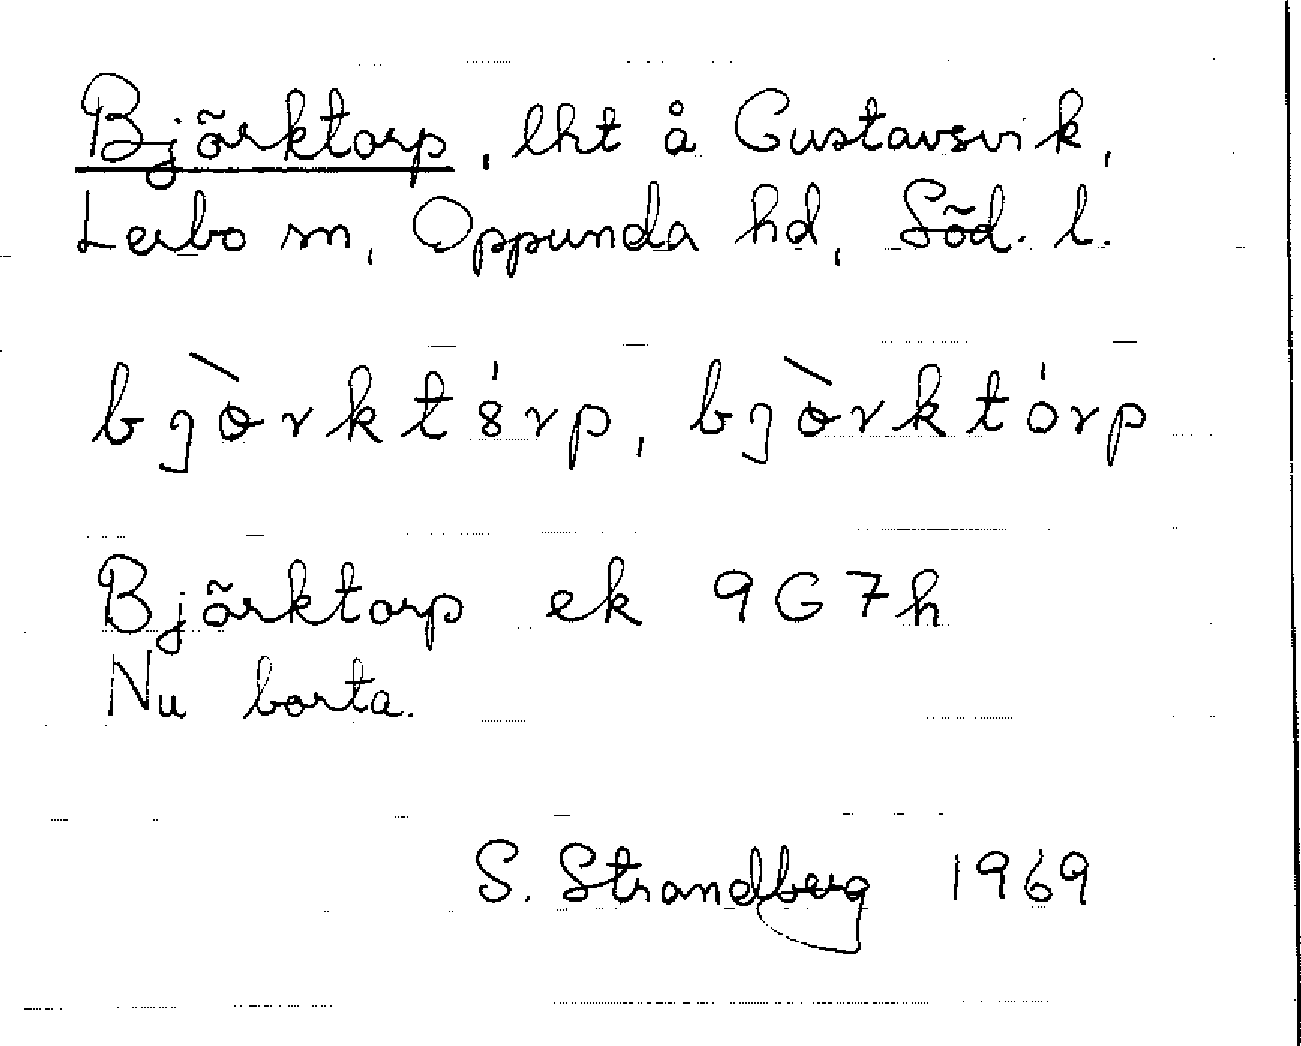 Björktorp, lht å Gustavsvik,
Lerbo sn, Oppunda hd, Söd. l.
bjòrkt8́rp, bjòrktórp
Björktorp ek 9G7h
Nu borta.
S. Strandberg 1969